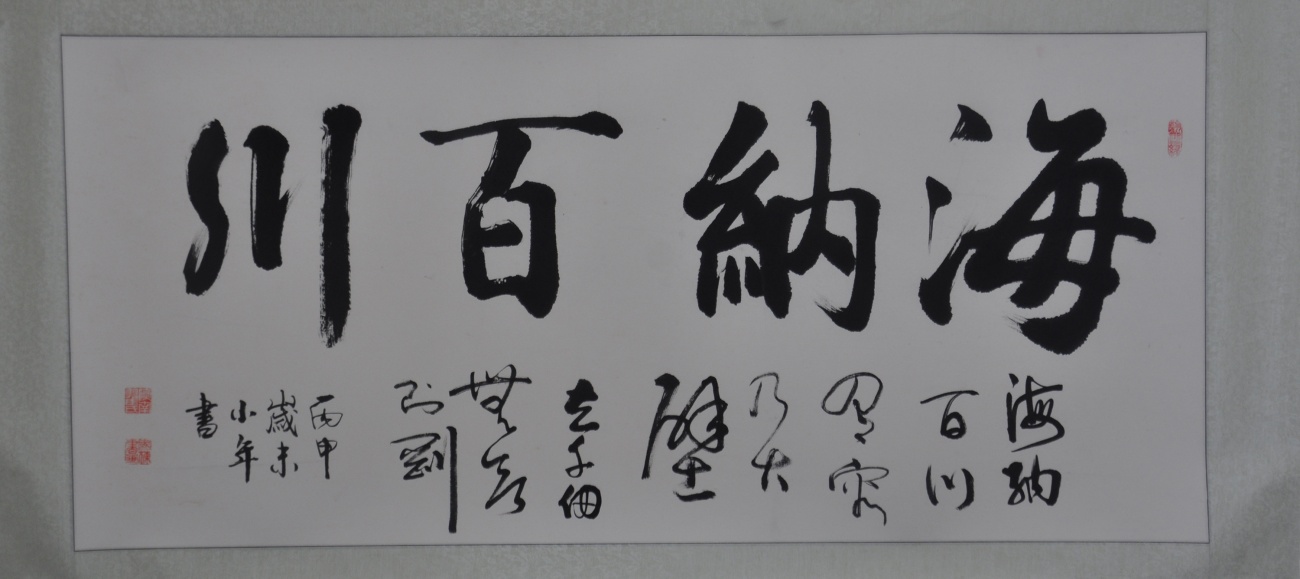 海納百川
海納
百川
有容
乃大
壁
立千仞
無欲
則剛
丙申
歲末
小年
書